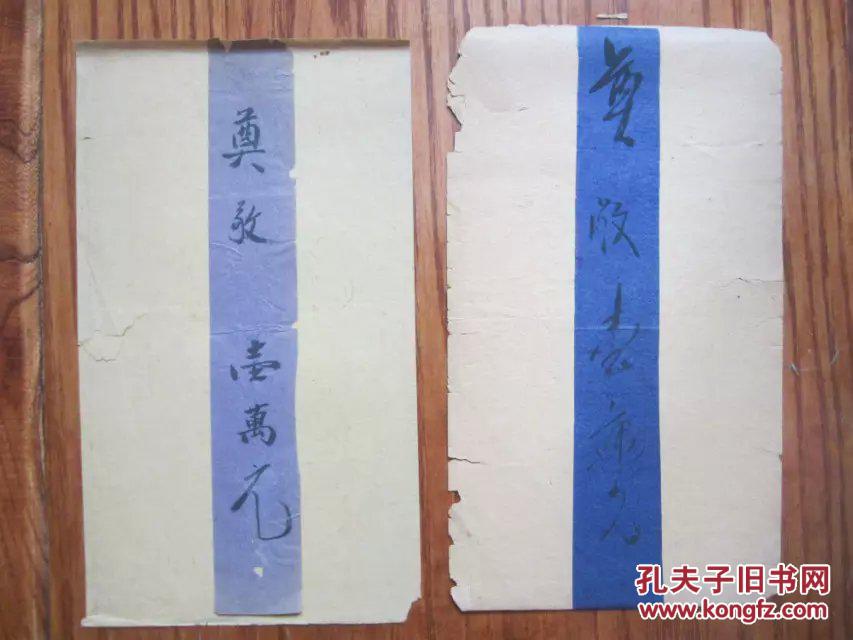 奠敬 壹萬元
奠敬壹萬元
孔夫子旧书网
www.kongfz.com